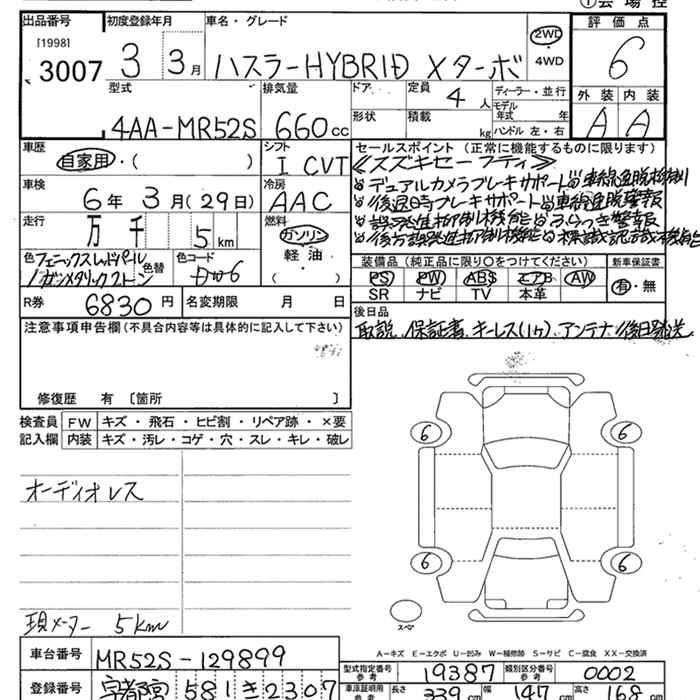 出品番号 初度登録年月 車名・グレード 評価点
[1998] 3007 3 3月 ハスラーHYBRID Xターボ 2WD ・ 4WD 6
型式 排気量 ドア 定員 4人 ディーラー・並行 外装 内装
4AA-MR52S 660cc 形状 積載 kg モデル年式 年 ハンドル 左・右 A A
車歴 自家用・( ) シフト I CVT セールスポイント (正常に機能するものに限ります)
≪スズキセーフティ≫
車検 6年3月(29日) 冷房 AAC
デュアルカメラブレーキサポート
後退時ブレーキサポート
走行 万 千 5km 燃料 ガソリン・軽油・( )
色 フェニックスレッドパール/ガンメタリック2トーン 色替 色コード
装備品 (純正品に限り○をつけてください) 新車保証書
PS PW ABS エアB AW 有・無
SR ナビ TV 本革
R券 6830円 名変期限 月 日
後日品
取説、保証書、キーレス(1ケ)、アンテナ/後日発送
注意事項申告欄(不具合内容等は具体的に記入して下さい)
修復歴 有 〔箇所 〕
検査員記入欄 FW キズ・飛石・ヒビ割・リペア跡・×要
内装 キズ・汚レ・コゲ・穴・スレ・キレ・破レ
6 6
オーディオレス
6 6
スペア
現メーター 5km
A-キズ E-エクボ U-凹み W-補修跡 S-サビ C-腐食 XX-交換済
車台番号 MR52S-129899
型式指定番号 参考 19387 類別区分番号 参考 0002
登録番号 宇都宮 581 き 2307
車庫証明用 参考 長さ 339cm 幅 147cm 高さ 168cm